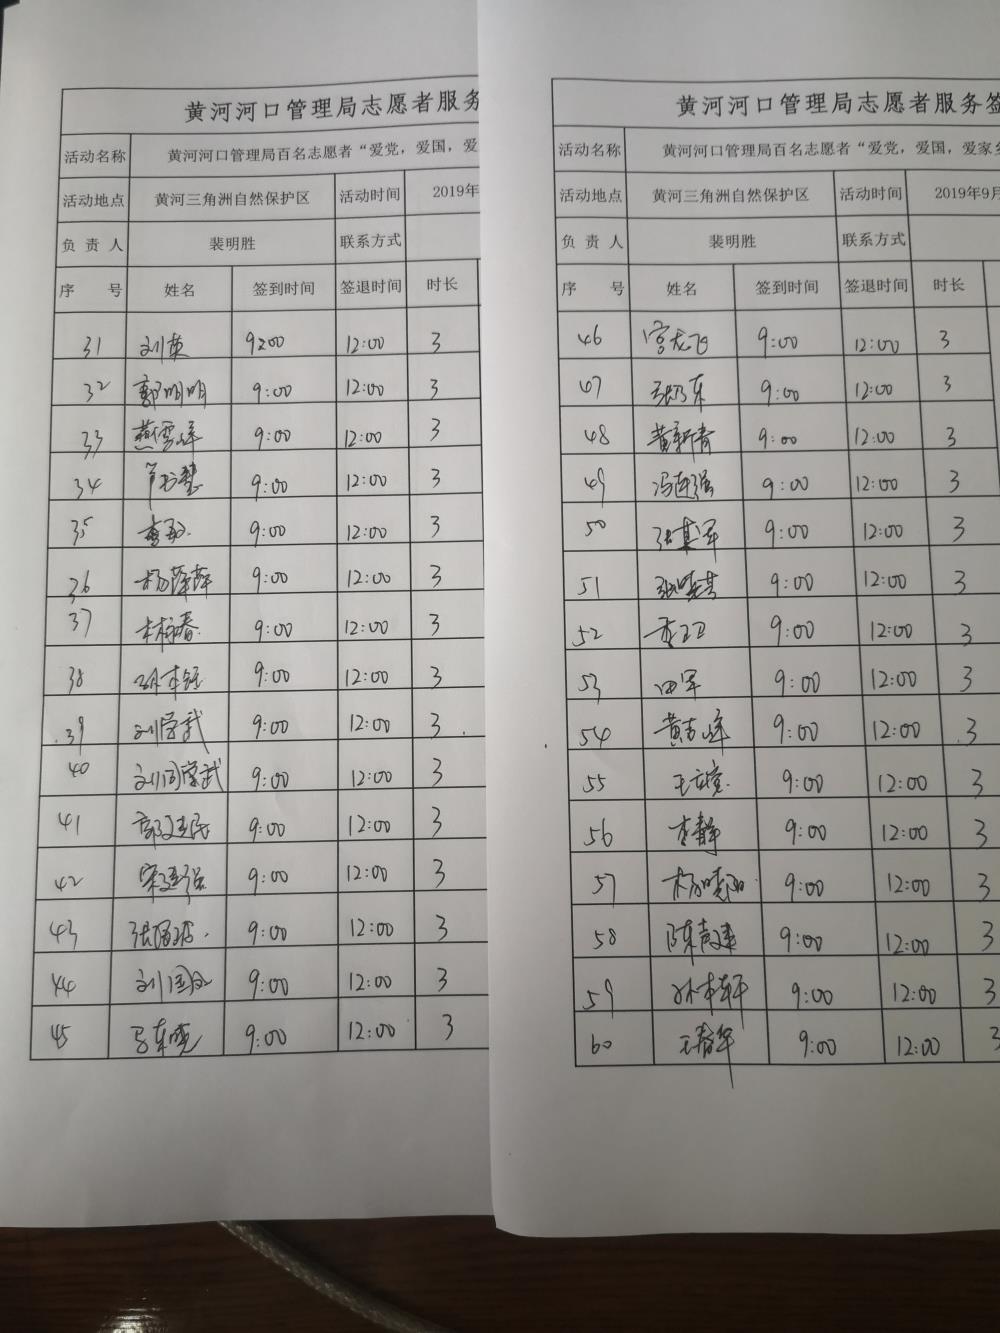 黄河河口管理局志愿者服务
活动名称 黄河河口管理局百名志愿者“爱党，爱国，爱
活动地点 黄河三角洲自然保护区 活动时间 2019年
负责人 裴明胜 联系方式
序号 姓名 签到时间 签退时间 时长
31 刘英 9:00 12:00 3
32 郭明明 9:00 12:00 3
33 燕雪峰 9:00 12:00 3
34 9:00 12:00 3
35 李敏 9:00 12:00 3
36 杨萍萍 9:00 12:00 3
37 9:00 12:00 3
38 9:00 12:00 3
39 刘学武 9:00 12:00 3
40 9:00 12:00 3
41 郭建民 9:00 12:00 3
42 宋建强 9:00 12:00 3
43 9:00 12:00 3
44 9:00 12:00 3
45 马东晓 9:00 12:00 3
黄河河口管理局志愿者服务签
活动名称 黄河河口管理局百名志愿者“爱党，爱国，爱家乡
活动地点 黄河三角洲自然保护区 活动时间 2019年9月
负责人 裴明胜 联系方式
序号 姓名 签到时间 签退时间 时长
46 宫龙飞 9:00 12:00 3
47 张乃东 9:00 12:00 3
48 黄新春 9:00 12:00 3
49 冯连强 9:00 12:00 3
50 9:00 12:00 3
51 9:00 12:00 3
52 李卫卫 9:00 12:00 3
53 田军 9:00 12:00 3
54 黄吉峰 9:00 12:00 3
55 9:00 12:00 3
56 李静 9:00 12:00 3
57 杨晓阳 9:00 12:00 3
58 9:00 12:00 3
59 孙本轩 9:00 12:00 3
60 王春华 9:00 12:00 3